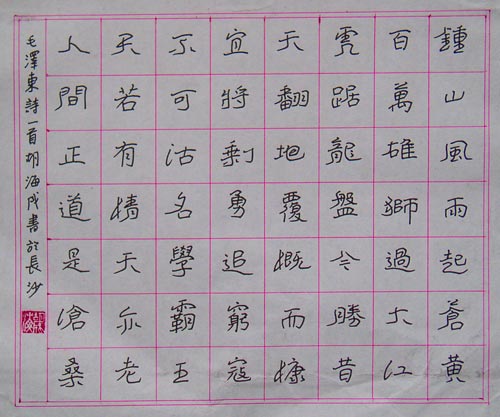 鍾山風雨起蒼黃
百萬雄獅過大江
虎踞龍盤今勝昔
天翻地覆慨而慷
宜將剩勇追窮寇
不可沽名學霸王
天若有情天亦老
人間正道是滄桑
毛澤東詩一首胡海成書於長沙